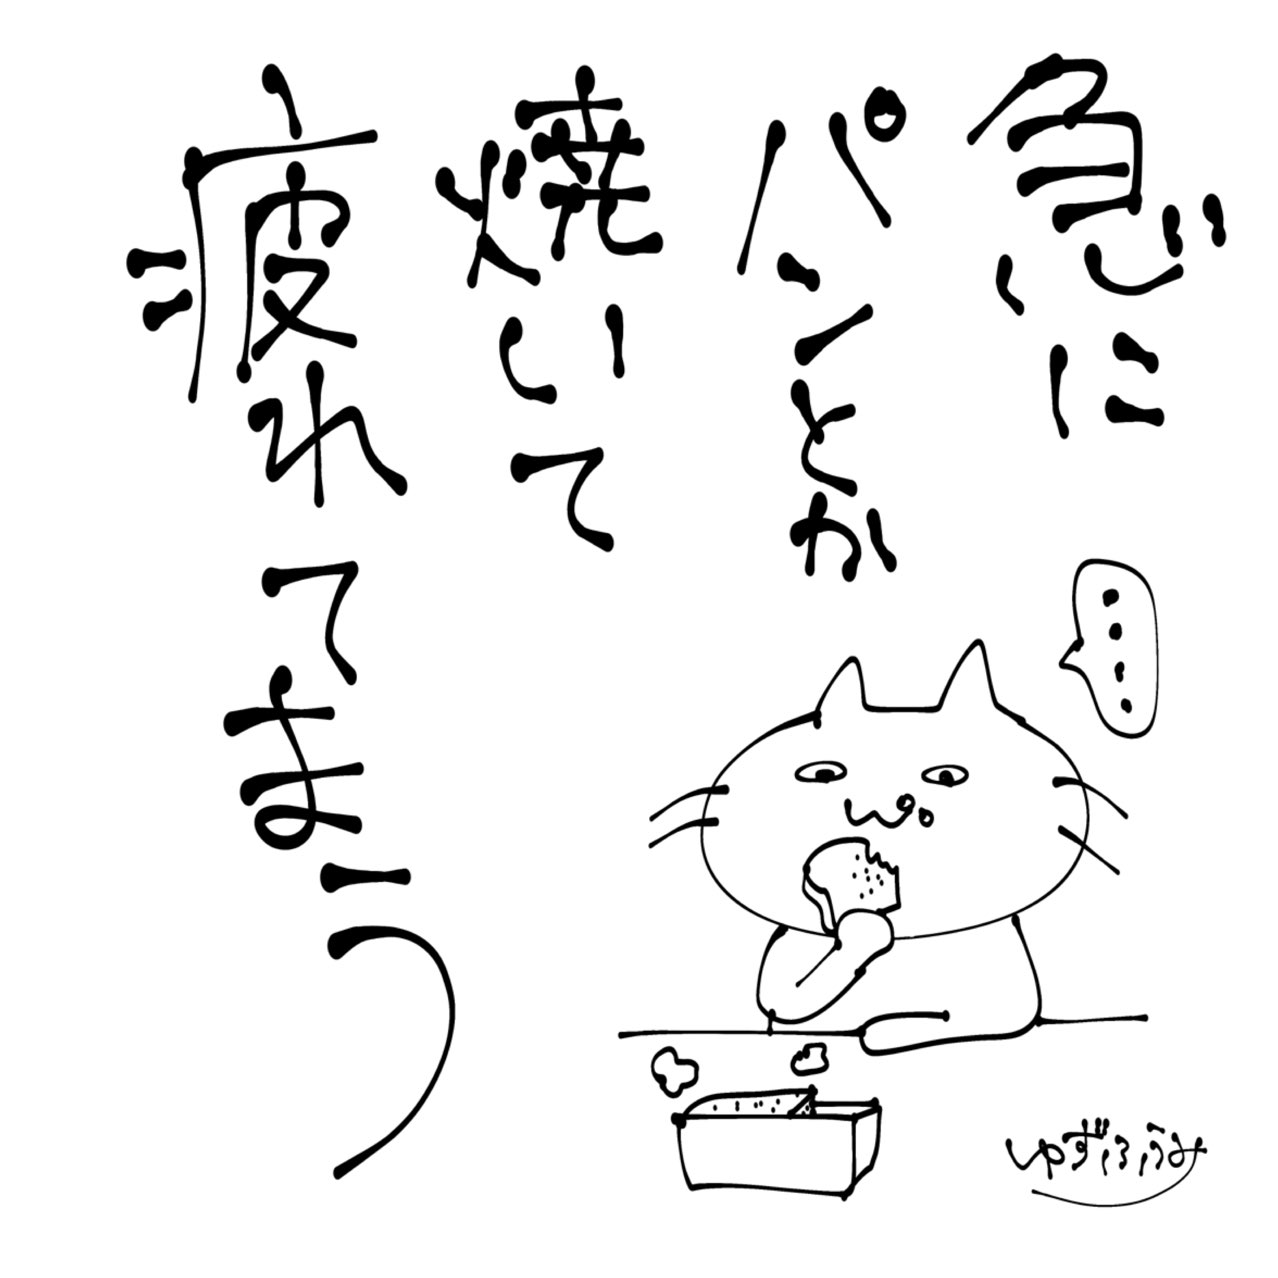 急に
パンとか
焼いて
疲れてまう
・・・・
ゆずふうみ